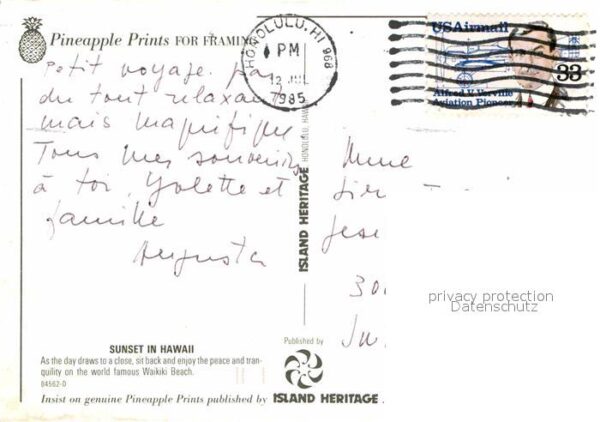 Pineapple Prints FOR FRAMIN
HONOLULU, HI 968
PM
12 JUL
1985
USAirmail
33
Alfred V. Verville
Aviation Pioneer
Petit voyage pas
du tout relaxant
mais magnifique
Tous mes souvenirs
à toi, Yolette et
famille
Augusta
Mme
30
ISLAND HERITAGE
HONOLULU, HAWAII
privacy protection
Datenschutz
SUNSET IN HAWAII
As the day draws to a close, sit back and enjoy the peace and tran-
quility on the world famous Waikiki Beach.
04562-D
Published by
Insist on genuine Pineapple Prints published by ISLAND HERITAGE